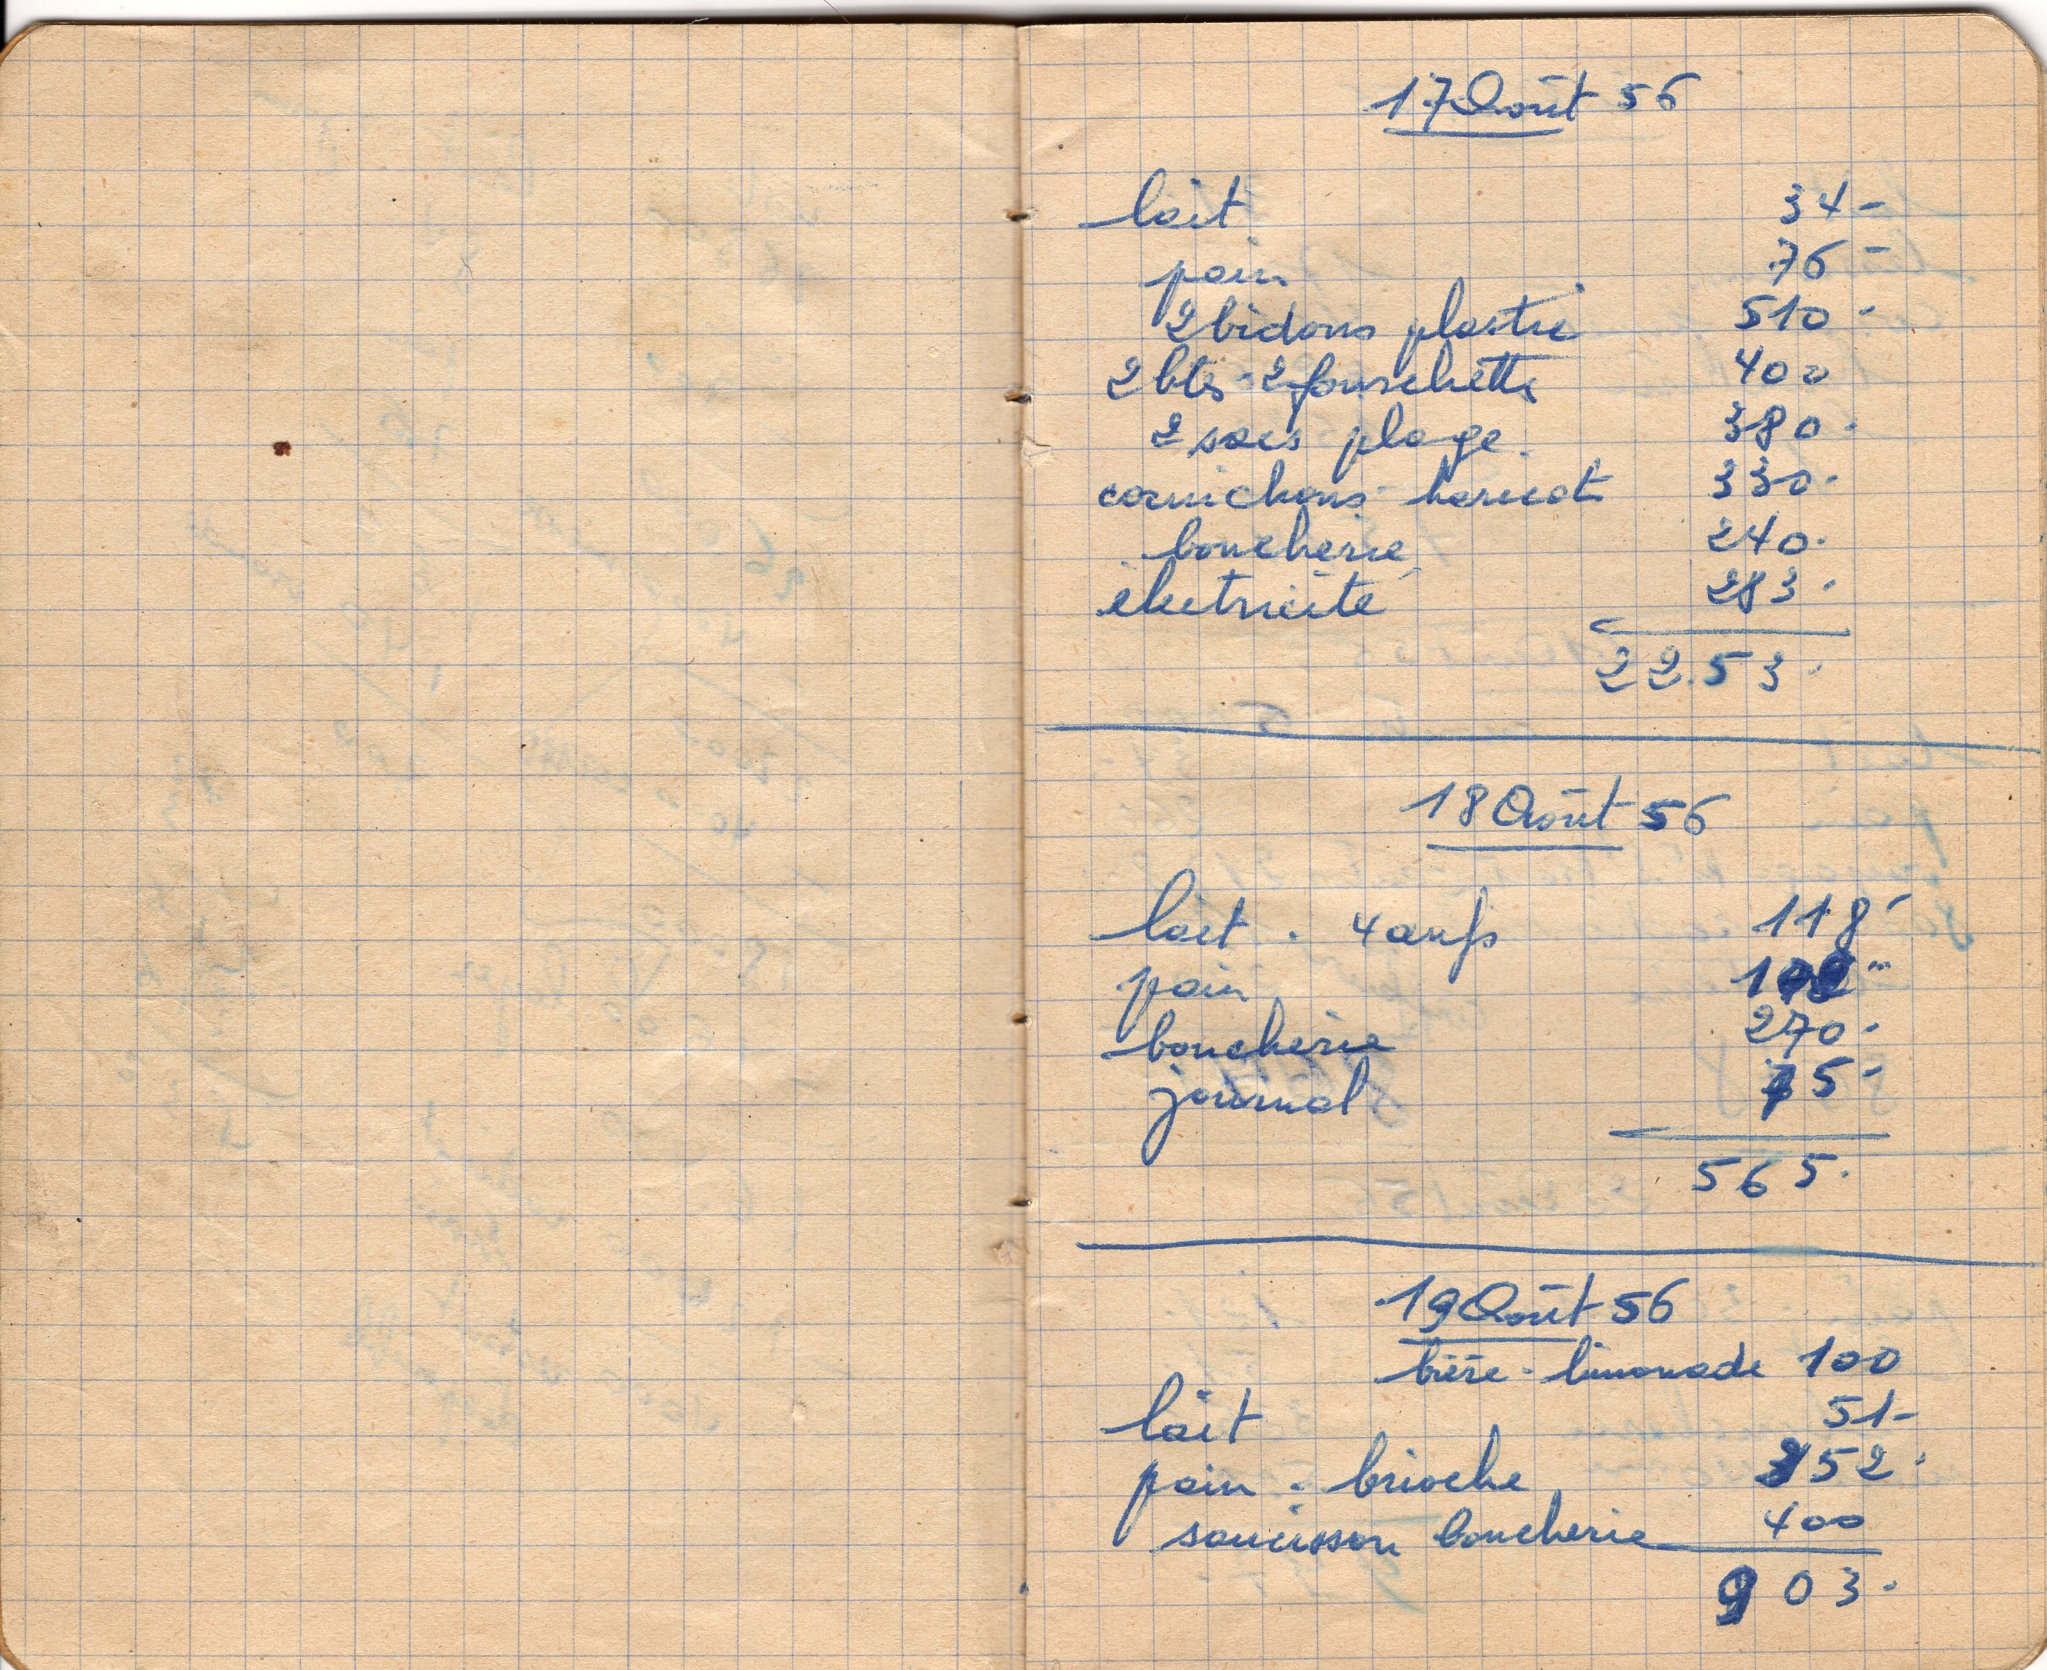 17 Août 56
lait 34-
pain 76-
2 bidons plastic 510-
2 bts - 2 fourchette 400
2 sacs plage. 380-
cornichons - haricot 330-
boucherie 240-
électricité 283-
22.53-
18 Août 56
lait - 4 œufs 118-
pain
boucherie 270-
journal 75-
565-
19 Août 56
bière - limonade 100
lait 51-
pain - brioche 352-
saucisson boucherie 400
903-